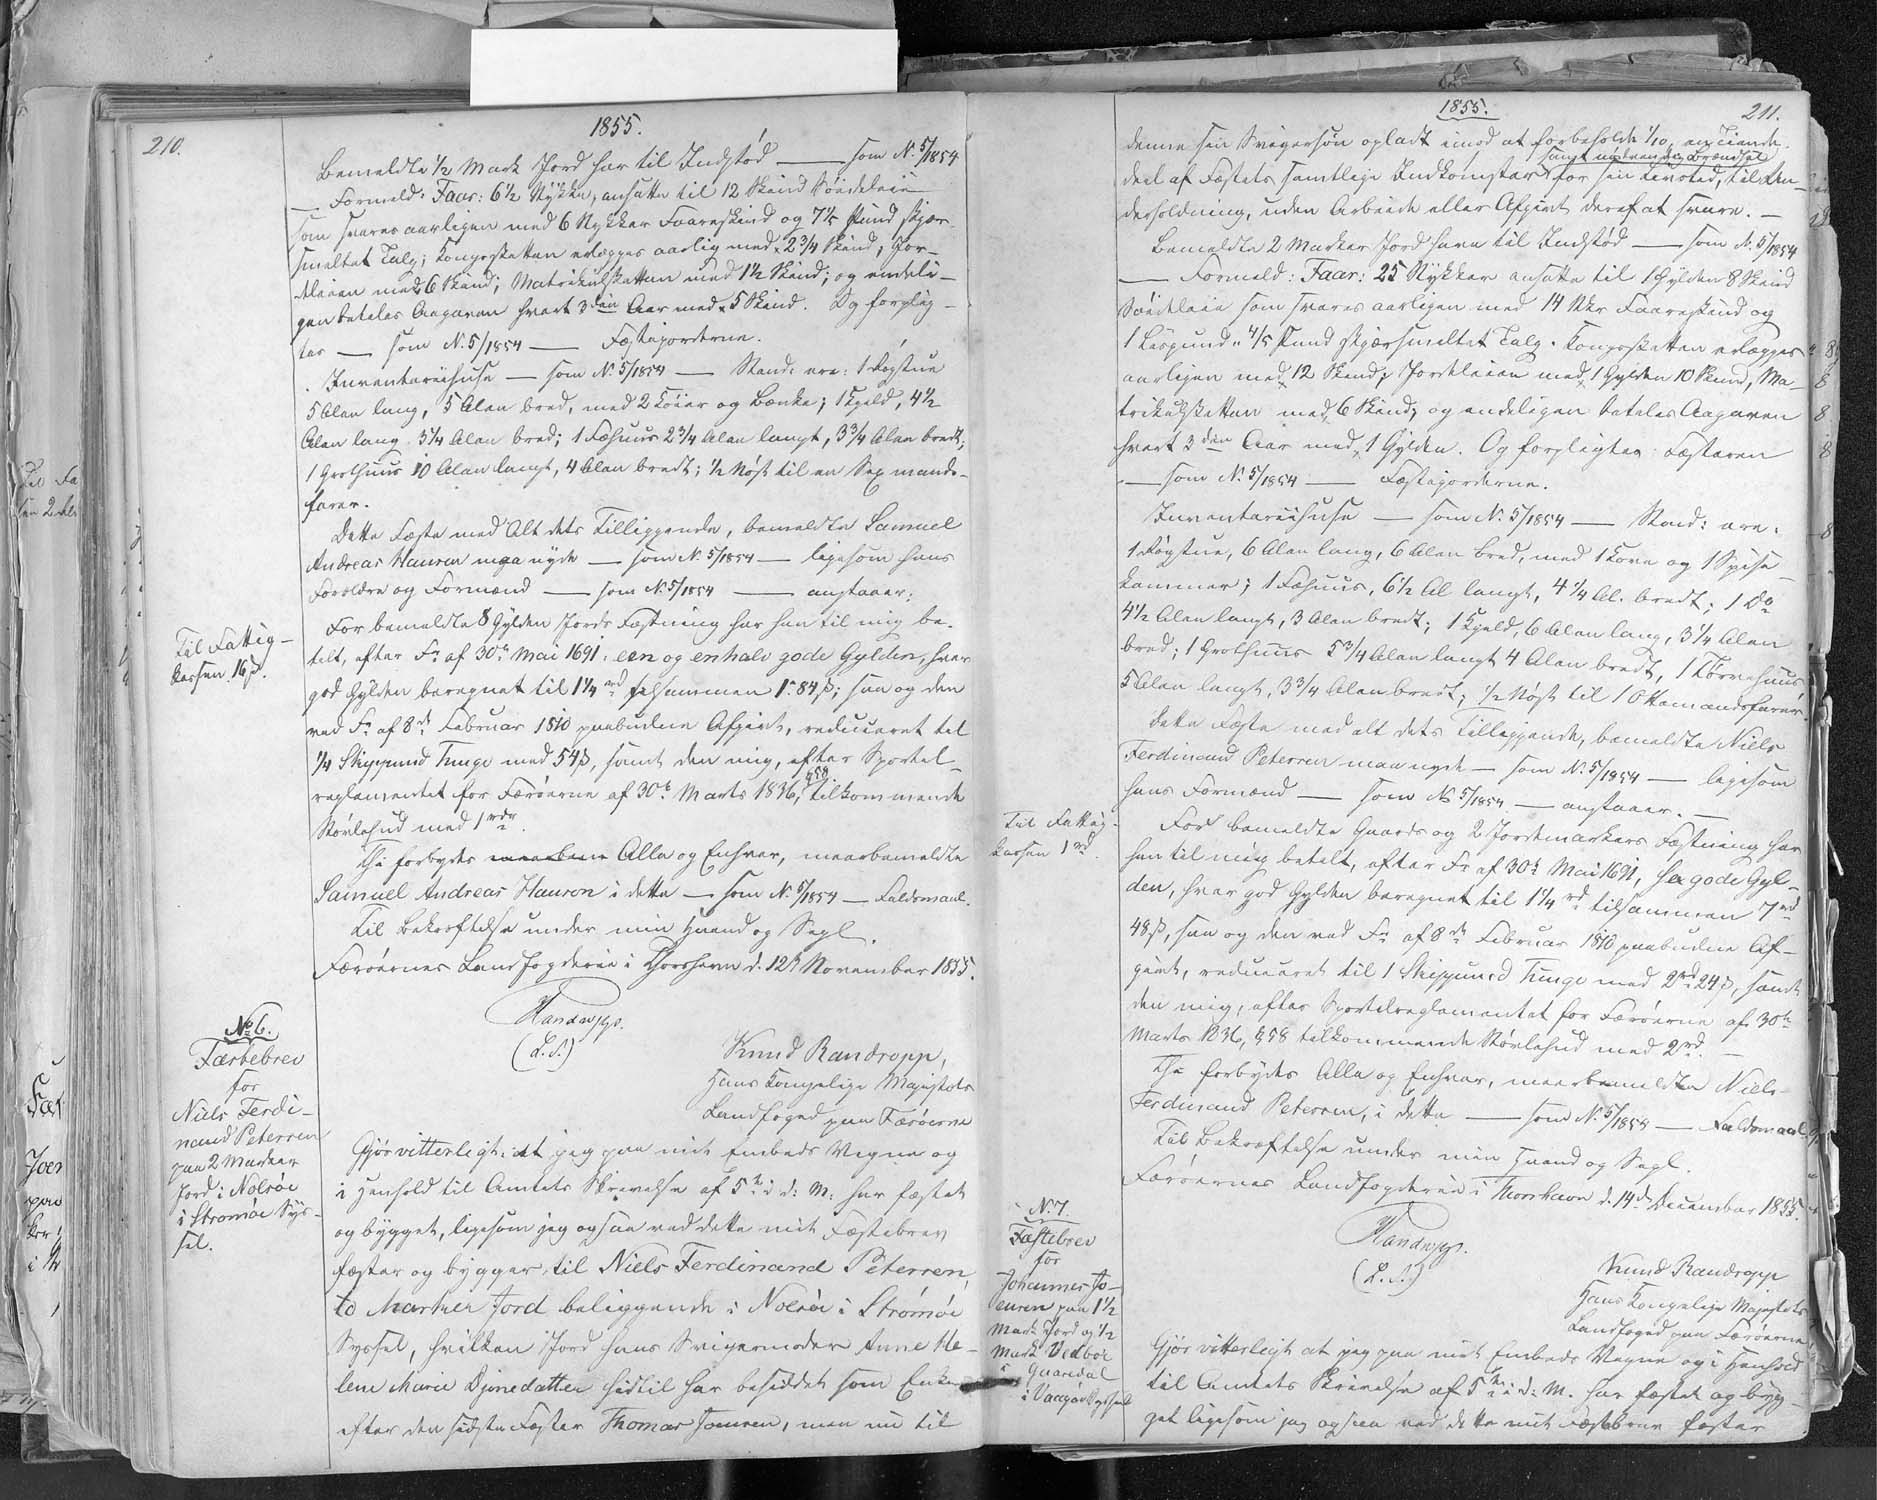 210.
1855.
Bemeldte 1/2 Mark Jord har til Indstød — som No 5/1854
— Formeld: Faar: 6 1/2 Stykke, ansatte til 12 Skind Søideleie
som svares aarligen med 6 Stykker Faareskind og 7 1/5 Pund skjær-
smeltet Talg; Kongsskatten erlægges aarlig med 2 3/4 Skind; Jor-
deleien med 6 Skind; Matrikulskatten med 1 1/2 Skind; og endeli-
gen betales Aagaven hvert 3die Aar med 5 Skind. Og forplig-
tes — som No. 5/1854 — Fæstejorderne.
Inventariihuse — som No 5/1854 — Stand: ere: 1 Røgstue
5 Alen lang, 5 Alen bred, med 2 Køier og Bænke; 1 Hjeld, 4 1/2
Alen lang 3 1/4 Alen bred; 1 Fæhuus 2 3/4 Alen langt, 3 3/4 Alen bredt;
1 Grothuus 10 Alen langt, 4 Alen bredt; 1/2 Nøst til en Sex mands-
farer.
Dette Fæste med Alt dets Tilliggende, bemeldte Samuel
Andreas Hansen maa nyde — som No 5/1854 — ligesom hans
Forældre og Formænd — som No. 5/1854 — angaaer:
For bemeldte 8 Gylden Jords Fæstning har han til mig be-
talt, efter Fr af 30te Mai 1691, een og en halv gode Gylden, hver
god Gylden beregnet til 1 1/4 rd tilsammen 1 rd 84 ß; saa og den
ved Fr af 8de Februar 1810 paabudne Afgivt, reduceret til
1/4 Skippund Tunge med 54 ß, samt den mig, efter Sportel-
reglementet for Færøerne af 30te Marts 1836, § 58 tilkommende
Størlehud med 1 rdr.
Thi forbydes Alle og Enhver, meerbemeldte
Samuel Andreas Hansen i dette — som No. 5/1854 — Faldsmaal.
Til Bekræftelse under min Haand og Segl.
Færøernes Landfogderie i Thorshavn d: 12te November 1855.
Randropp.
(L.S.)
Til Fattig-
kassen 16 ß.
No 6.
Fæstebrev
for
Niels Ferdi-
nand Petersen
paa 2 Marker
Jord i Nolsøe
i Strømøe Sys-
sel.
Knud Randropp,
Hans Kongelige Majestæts
Landfoged paa Færøerne
Gjør vitterligt: at jeg paa mit Embeds Vegne og
i Henhold til Amtets Skrivelse af 5te i d: M: har fæstet
og bygget, ligesom jeg ogsaa ved dette mit Fæstebrev
fæster og bygger til Niels Ferdinand Petersen,
to Marker Jord beliggende i Nolsøe i Strømøe
Syssel, hvilken Jord hans Svigermoder Anne He-
lene Marie Djonedatter hidtil har besiddet som Enke
efter den sidste Fæster Thomas Joensen, men nu til
1855.
211.
denne sin Svigersøn opladt imod at forbeholde 1/10, en Tiende-
deel af Fæstets samtlige Indkomster samt nødvendig Brændsel for sin Levetid, til Un-
derholdning, uden Arbeide eller Afgivt deraf at svare. —
Bemeldte 2 Marker Jord have til Indstød — som No. 5/1854
— Formeld: Faar: 25 Stykker ansatte til 1 Gylden 8 Skind
Søideleie som svares aarligen med 14 Stkr Faareskind og
1 Lispund 4/5 Pund skjærsmeltet Talg. Kongsskatten erlægges
aarligen med 12 Skind; Jordeleien med 1 Gylden 10 Skind, Ma-
trikulskatten med 6 Skind; og endeligen betales Aagaven
hvert 3die Aar med 1 Gylden. Og forpligtes: Fæsteren
— som No. 5/1854 — Fæstejorderne.
Inventariihuse — som No. 5/1854 — Stand: ere:
1 Røgstue, 6 Alen lang, 6 Alen bred, med 1 Kove og 1 Spise-
kammer; 1 Fæhuus, 6 1/2 Al langt, 4 1/4 Al. bredt; 1 Do
4 1/2 Alen langt, 3 Alen bredt; 1 Hjeld, 6 Alen lang, 3 1/4 Alen
bred; 1 Grothuus 5 3/4 Alen langt 4 Alen bredt, 1 Tørvehuus
5 Alen langt, 3 3/4 Alen bredt; 1/2 Nøst til 1 Ottemandsfarer.
Dette Fæste med alt dets Tilliggende, bemeldte Niels
Ferdinand Petersen maa nyde — som No. 5/1854 — ligesom
hans Formænd — som No 5/1854 — angaaer. —
For bemeldte Gaards og 2 Jordemarkers Fæstning har
han til mig betalt, efter Fr af 30te Mai 1691, sex gode Gyl-
den, hver god Gylden beregnet til 1 1/4 rd tilsammen 7 rd
48 ß, saa og den ved Fr af 8de Februar 1810 paabudne Af-
givt, reduceret til 1 Skippund Tunge med 2 rd 24 ß, samt
den mig, efter Sportelreglementet for Færøerne af 30te
Marts 1836, § 58 tilkommende Størlehud med 2 rd. —
Thi forbydes Alle og Enhver, meerbemeldte Niels
Ferdinand Petersen, i dette — som No. 5/1854 — Faldsmaal
Til Bekræftelse under min Haand og Segl.
Færøernes Landfogderie i Thorshavn d: 14de December 1855.
Randropp.
(L.S.)
Til Fattig-
kassen 1 rd.
No. 7.
Fæstebrev
for
Johannes Jo-
ensen paa 1 1/2
Mark Jord og 1/2
Mark Vedbøe
i Qvaredal
i Vaagøe Syssel
Knud Randropp
Hans Kongelige Majestæts
Landfoged paa Færøerne
Gjør vitterligt at jeg paa mit Embeds Vegne og i Henhold
til Amtets Skrivelse af 5te i d: M. har fæstet og byg-
get ligesom jeg ogsaa ved dette mit Fæstebrev fæster